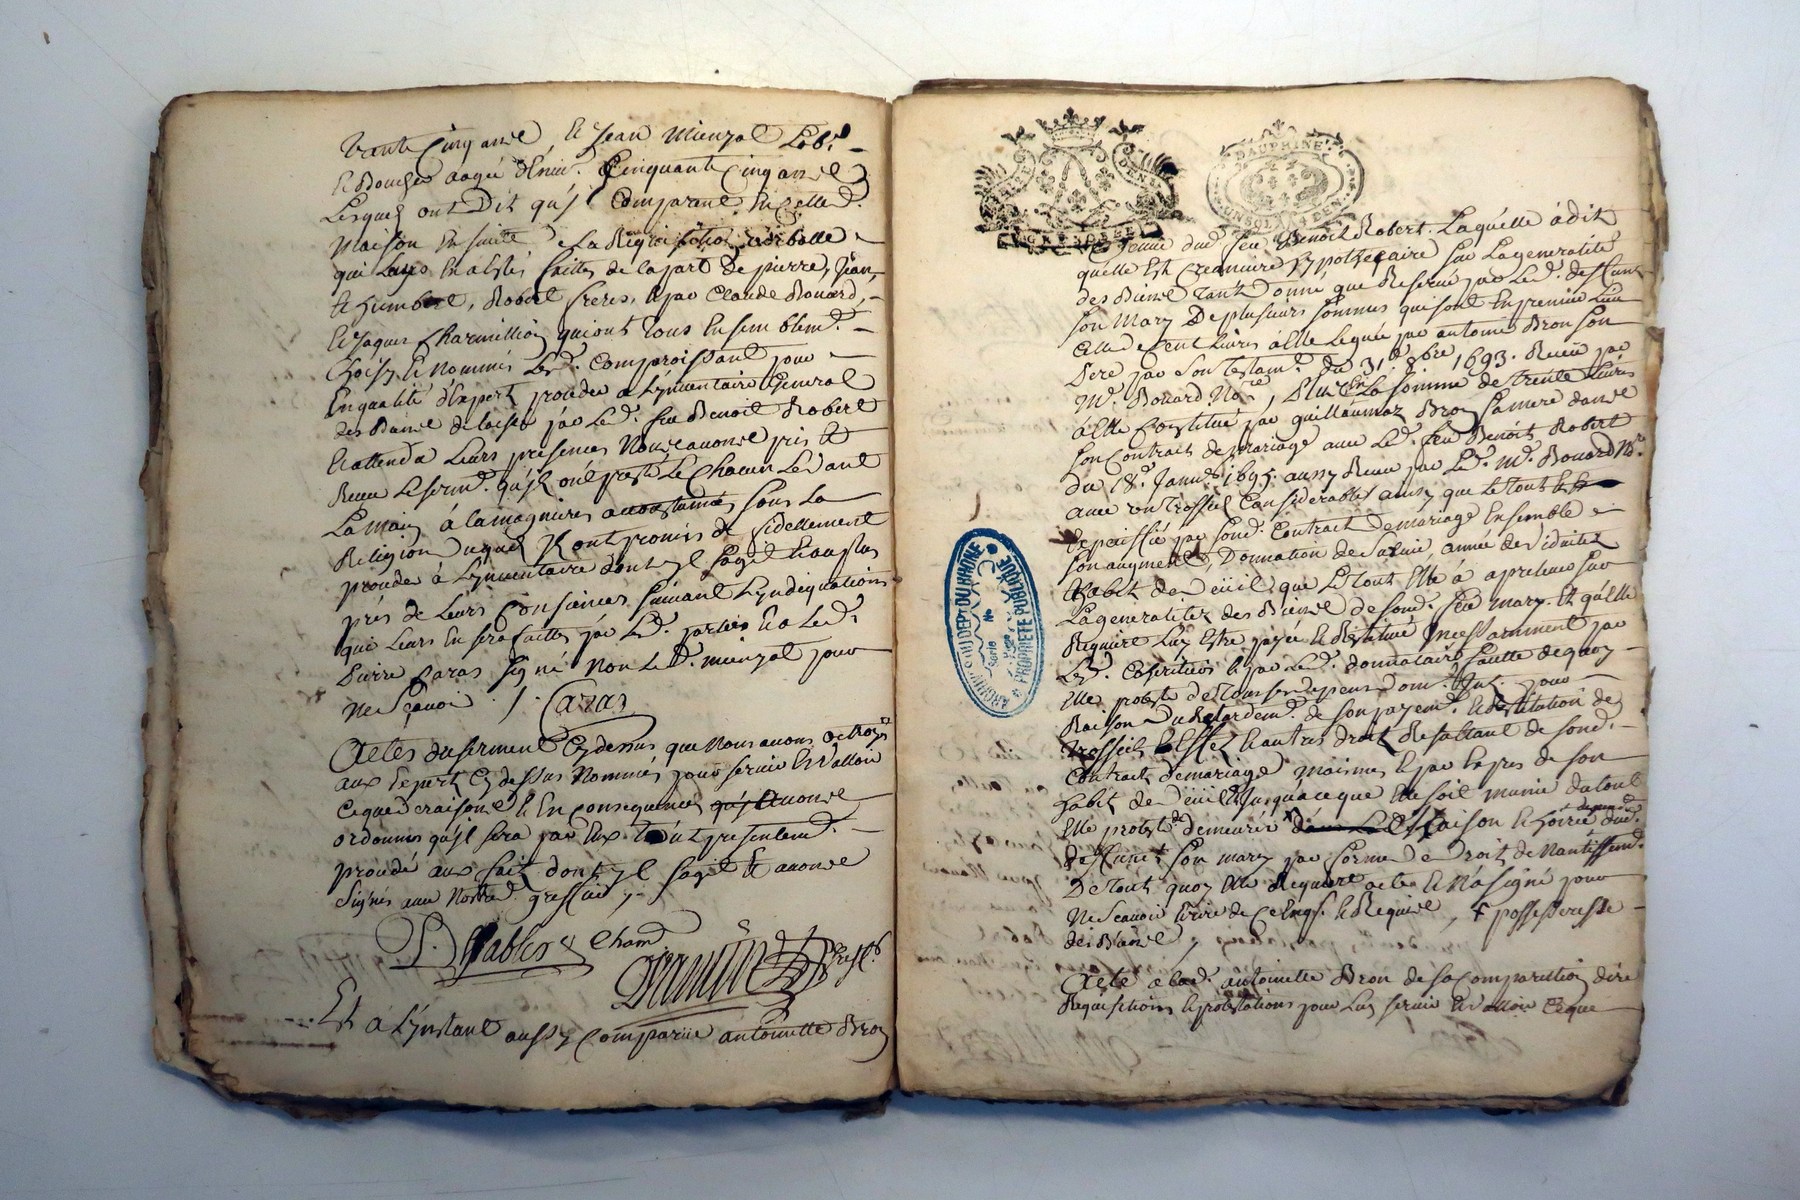 trante cinq ans et Jean Mienzal Lab.r
et Boucher aagé d'Envi. Cinquante cinq ans
Lesquels ont Dit qu'ils Comparant En cette d.
Maison En suitte de La Requisition verballe
qui Leurs En a Estés faittes de la part De pierre, Jean,
et humbert, Robert freres, et par Claude Bouard,
et Jaques Charmillion qui ont tous Ensemblem.t
Choisy et nommés Les d. Comparoissant pour
En qualité d'Expert proceder a L'ynventaire General
des Biens delaissés par Le d. feu Benoit Robert
Et attendu Leurs presences Nous avons pris et
Receu Le serm.t qu'ils ont presté Le Chacun Levant
La main à la magniere accoustumée sous La
Religion duquel ils ont promis de fidellement
proceder à L'ynventaire dont yl s'agit Et au plus
près de Leurs Consciences suivant L'yndiquations
qui Leurs En sera faitte par Les d. parties Et a Led.
Pierre Caras signé Non Le d. mienzal pour
ne sçavoir / . Caras
Actes du serment Cy dessus que Nous avons octroyé
aux Expert Cy dessus Nommés pour servir Et valloir
Ce que de raison et En consequence qu'il avons
ordonnés qu'il sera par Eux tout presentem.t
procedé aux fait dont yl s'agit Et avons
signés avec Nostre d. greffier
Et a L'ynstant aussy Comparüe antoinette Bron
GRENOBLE
DAUPHINÉ
UN SOL 4 DEN
Veufve dud. feu Benoit Robert. Laquelle à dit
quelle Est Creanciere hypothecaire sur La generalité
des Biens tant Donné que Reservé par Le d. deffunt
son Mary De plusieurs sommes qui sont En premier Lieu
Celle de Cent Livres à Elle Leguée par antoine Bron son
Pere par son testam.t du 31.e xbre 1693. Receu par
M.e Bouard No.re, Plus En La somme de trente Livres
à Elle Constitué par guillaumaz Bron sa mere dans
son Contract de mariage avec Le d. feu Benoit Robert
du 18.e Janv. 1695. aussy Receu par Le d. M.e Bouard N.re
avec un trossel Considerable ainsy que Le tout
Especiffié par son d. Contract de mariage Ensemble
son augment, Donnation de survie, année de viduité
Habit de düeil, que Le tout Elle à à prendre sur
La generalitez des Biens de son d. feu mary. Et qu'elle
Requiert Luy Estre payée et Restitué Incessamment par
Les d. Coheritiers et par Le d. donnataire fautte de quoy
Elle proteste de tous ses depens dom. Int. pour
Raison du Retardem.t de son payem.t Restitution de
trosseil Et autres droit Resultant de son d.
Contract de mariage mesmes et par Expres de son
habit de düeil Et Jusqu'a ce que Elle soit munie du tout
Elle proteste de demeurer Maison et hoirie dud.
deffunct son mary par forme de Droit de Nantissem.t
De tout quoy Elle Requiert acte Et N'a signé pour
Ne sçavoir Ecrire de Ce Enq.s et Requise, + possesseresse
des Biens
Acte a La d. antoinette Bron de sa Comparution dire
Requisitions et protestations pour Luy servir Et valloir Ce que
ARCHIVES DU DEPT DU RHONE
Serie
No
PROPRIÉTÉ PUBLIQUE